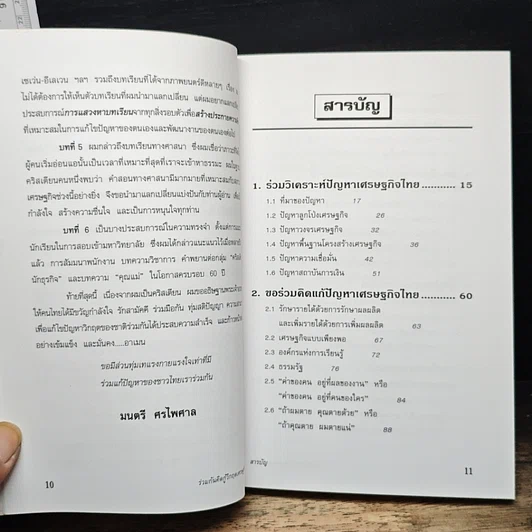 เซเว่น-อีเลเวน ฯลฯ รวมถึงบทเรียนที่ได้จากภาพยนตร์ดีหลายๆ เรื่อง
ไม่ได้ต้องการให้เห็นตัวบทเรียนที่ผมนำมาแลกเปลี่ยน แต่ผมอยากแลกเปลี่ยน
ประสบการณ์การแสวงหาบทเรียนจากทุกสิ่งรอบตัวเพื่อสร้างประกายความคิด
ที่เหมาะสมในการแก้ไขปัญหาของตนเองและพัฒนางานของตนเองต่อไป
บทที่ 5 ผมกล่าวถึงบทเรียนทางศาสนา ซึ่งผมเชื่อว่าภาวะที่
ผู้คนเริ่มอ่อนแอนั้นเป็นเวลาที่เหมาะที่สุดที่เราจะเข้าหาธรรมะ ผมในฐานะ
คริสเตียนคนหนึ่งพบว่า คำสอนทางศาสนามีมากมายที่เหมาะสมกับสภาวะ
เศรษฐกิจช่วงนี้อย่างยิ่ง จึงขอนำมาแลกเปลี่ยนแบ่งปันกับท่านผู้อ่าน เพื่อให้
กำลังใจ สร้างความชื่นใจ และเป็นการหนุนใจทุกท่าน
บทที่ 6 เป็นบางประสบการณ์ในความทรงจำ ตั้งแต่การ
นักเรียนในการสอบเข้ามหาวิทยาลัย ซึ่งผมได้กล่าวแนะแนวไว้เมื่อ
แล้ว การสัมมนาพนักงาน บทความวิชาการ คำพยานต่อกลุ่ม "คริสเตียน
นักธุรกิจ" และบทความ "คุณแม่" ในโอกาสครบรอบ 60 ปี
ท้ายที่สุดนี้ เนื่องจากผมเป็นคริสเตียน ผมขออธิษฐานพระเจ้า
ให้คนไทยได้มีขวัญกำลังใจ รักสามัคคี ร่วมมือกัน ทุ่มสติปัญญา ความสามารถ
เพื่อแก้ไขปัญหาวิกฤตของชาติร่วมกันได้ประสบความสำเร็จ และก้าวหน้า
อย่างเข้มแข็ง และมั่นคง....อาเมน
ขอมีส่วนทุ่มเทแรงกายแรงใจเท่าที่มี
ร่วมแก้ปัญหาของชาวไทยเราร่วมกัน
มนตรี ศรไพศาล
10
ร่วมกันคิดกู้วิกฤตเศรษฐกิจ
สารบัญ
1. ร่วมวิเคราะห์ปัญหาเศรษฐกิจไทย........... 15
1.1 ที่มาของปัญหา 17
1.2 ปัญหาลูกโป่งเศรษฐกิจ 26
1.3 ปัญหาวงจรเศรษฐกิจ 32
1.4 ปัญหาพื้นฐานโครงสร้างเศรษฐกิจ 36
1.5 ปัญหาความเชื่อมั่น 41
1.6 ปัญหาสถาบันการเงิน 51
2. ขอร่วมคิดแก้ปัญหาเศรษฐกิจไทย........... 60
2.1 รักษารายได้ด้วยการรักษาผลผลิต
และเพิ่มรายได้ด้วยการเพิ่มผลผลิต 63
2.2 เศรษฐกิจแบบเพียงพอ 67
2.3 องค์กรแห่งการเรียนรู้ 72
2.4 ธรรมรัฐ 76
2.5 "ค่าของคน อยู่ที่ผลของงาน" หรือ
"ค่าของคน อยู่ที่คนของใคร" 84
2.6 "ถ้าผมตาย คุณตายด้วย" หรือ
"ถ้าคุณตาย ผมตายแน่" 88
สารบัญ
11